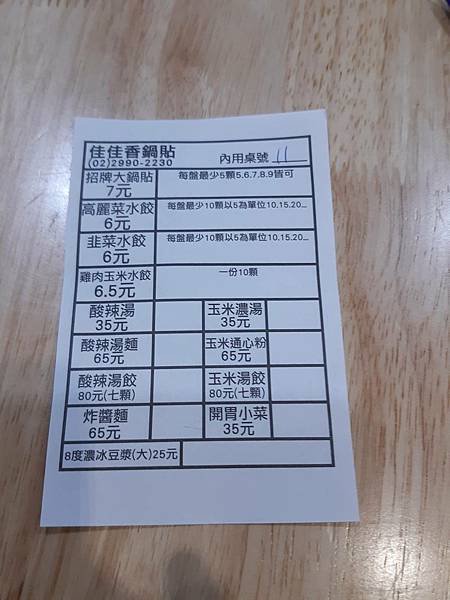 佳佳香鍋貼
(02)2990-2230
內用桌號 11
招牌大鍋貼
7元
每盤最少5顆5.6.7.8.9皆可
高麗菜水餃
6元
每盤最少10顆以5為單位10.15.20...
韭菜水餃
6元
每盤最少10顆以5為單位10.15.20...
雞肉玉米水餃
6.5元
一份10顆
酸辣湯
35元
玉米濃湯
35元
酸辣湯麵
65元
玉米通心粉
65元
酸辣湯餃
80元(七顆)
玉米湯餃
80元(七顆)
炸醬麵
65元
開胃小菜
35元
8度濃冰豆漿(大)25元